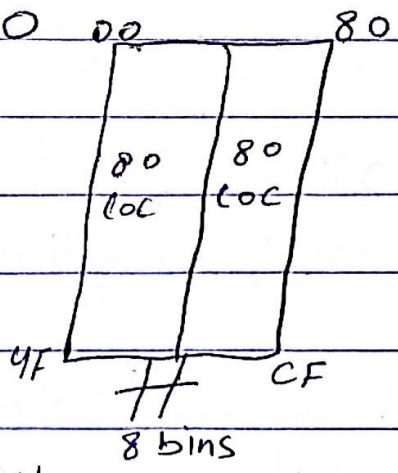 0 00 80
80 80
LOC LOC
4F CF
8 bins